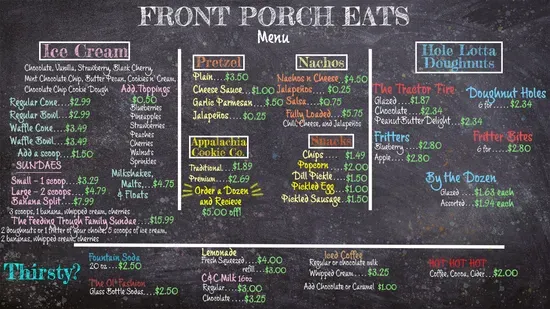 FRONT PORCH EATS
Menu
Ice Cream
Chocolate, Vanilla, Strawberry, Black Cherry,
Mint Chocolate Chip, Butter Pecan, Cookies n' Cream,
Chocolate Chip Cookie Dough
Regular Cone....$2.99
Regular Bowl....$2.99
Waffle Cone.....$3.49
Waffle Bowl.....$3.49
Add a scoop....$1.50
Add Toppings
$0.50
Blueberries
Pineapples
Strawberries
Peaches
Cherries
Walnuts
Sprinkles
SUNDAES
Small – 1 scoop....$3.29
Large – 2 scoops....$4.79
Banana Split.......$7.99
*3 scoops, 1 banana, whipped cream, cherries
Milkshakes,
Malts,...$4.75
& Floats
The Feeding Trough Family Sundae....$15.99
2 doughnuts or 1 fritter of your choice, 5 scoops of ice cream,
2 bananas, whipped cream, cherries
Pretzel
Plain....$3.50
Cheese Sauce...$1.00
Garlic Parmesan...$.50
Jalapeños.....$0.25
Nachos
Nachos n Cheese..$4.50
Jalapeños....$0.25
Salsa.....$0.75
Fully Loaded....$5.75
Chili, Cheese, and Jalapeños
Appalachia
Cookie Co.
Traditional....$1.89
Premium.....$2.69
Order a Dozen
and Recieve
$5.00 off!
Snacks
Chips.....$1.49
Popcorn.....$2.00
Dill Pickle....$1.50
Pickled Egg....$1.00
Pickled Sausage..$1.50
Hole Lotta
Doughnuts
The Tractor Fire
Glazed....$1.87
Chocolate....$2.34
Peanut Butter Delight...$2.34
Doughnut Holes
6 for.......$2.34
Fritters
Blueberry....$2.80
Apple.....$2.80
Fritter Bites
6 for....$2.34
By the Dozen
Glazed ....$1.63 each
Assorted ....$1.94 each
Thirsty?
Fountain Soda
20 oz....$2.50
The Ol' Fashion
Glass Bottle Sodas...$2.50
Lemonade
Fresh Squeezed....$4.00
refill....$3.00
C&C Milk 16oz
Regular....$3.00
Chocolate....$3.25
Iced Coffee
Regular or chocolate milk
Whipped Cream....$3.25
Add Chocolate or Caramel $1.00
HOT HOT HOT
Coffee, Cocoa, Cider....$2.00